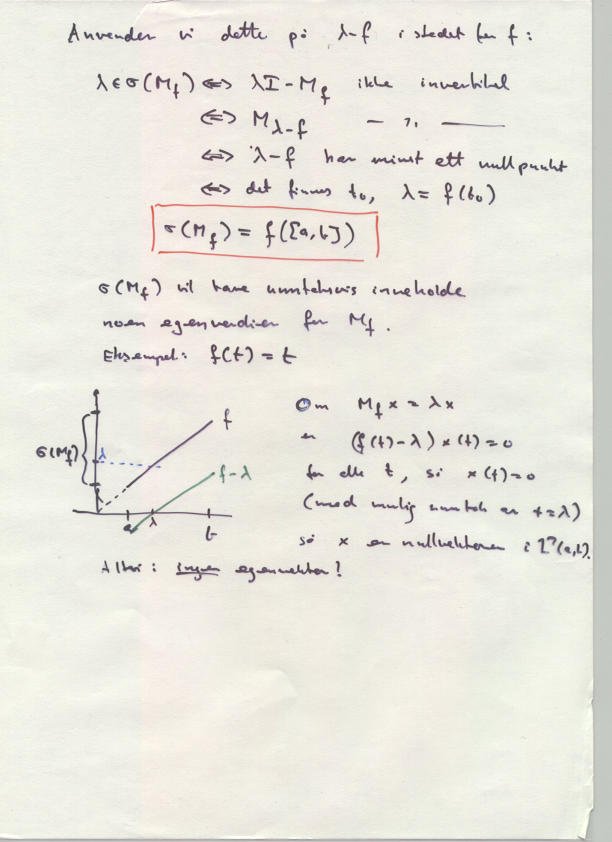 Anvender vi dette på λ-f i stedet for f:
λ ∈ σ(M_f) ⟺ λI - M_f ikke invertibel
⟺ M_{λ-f} — " —
⟺ λ-f har minst ett nullpunkt
⟺ det finnes t₀, λ = f(t₀)
σ(M_f) = f([a,b])
σ(M_f) vil bare unntaksvis inneholde
noen egenverdier for M_f.
Eksempel: f(t) = t
σ(M_f)
λ
f
f-λ
a λ b
Om M_f x = λx
er (f(t)-λ) x(t) = 0
for alle t, så x(t) = 0
(med mulig unntak av t = λ)
så x er nullvektoren i L²(a,b).
Altså: ingen egenvektor!